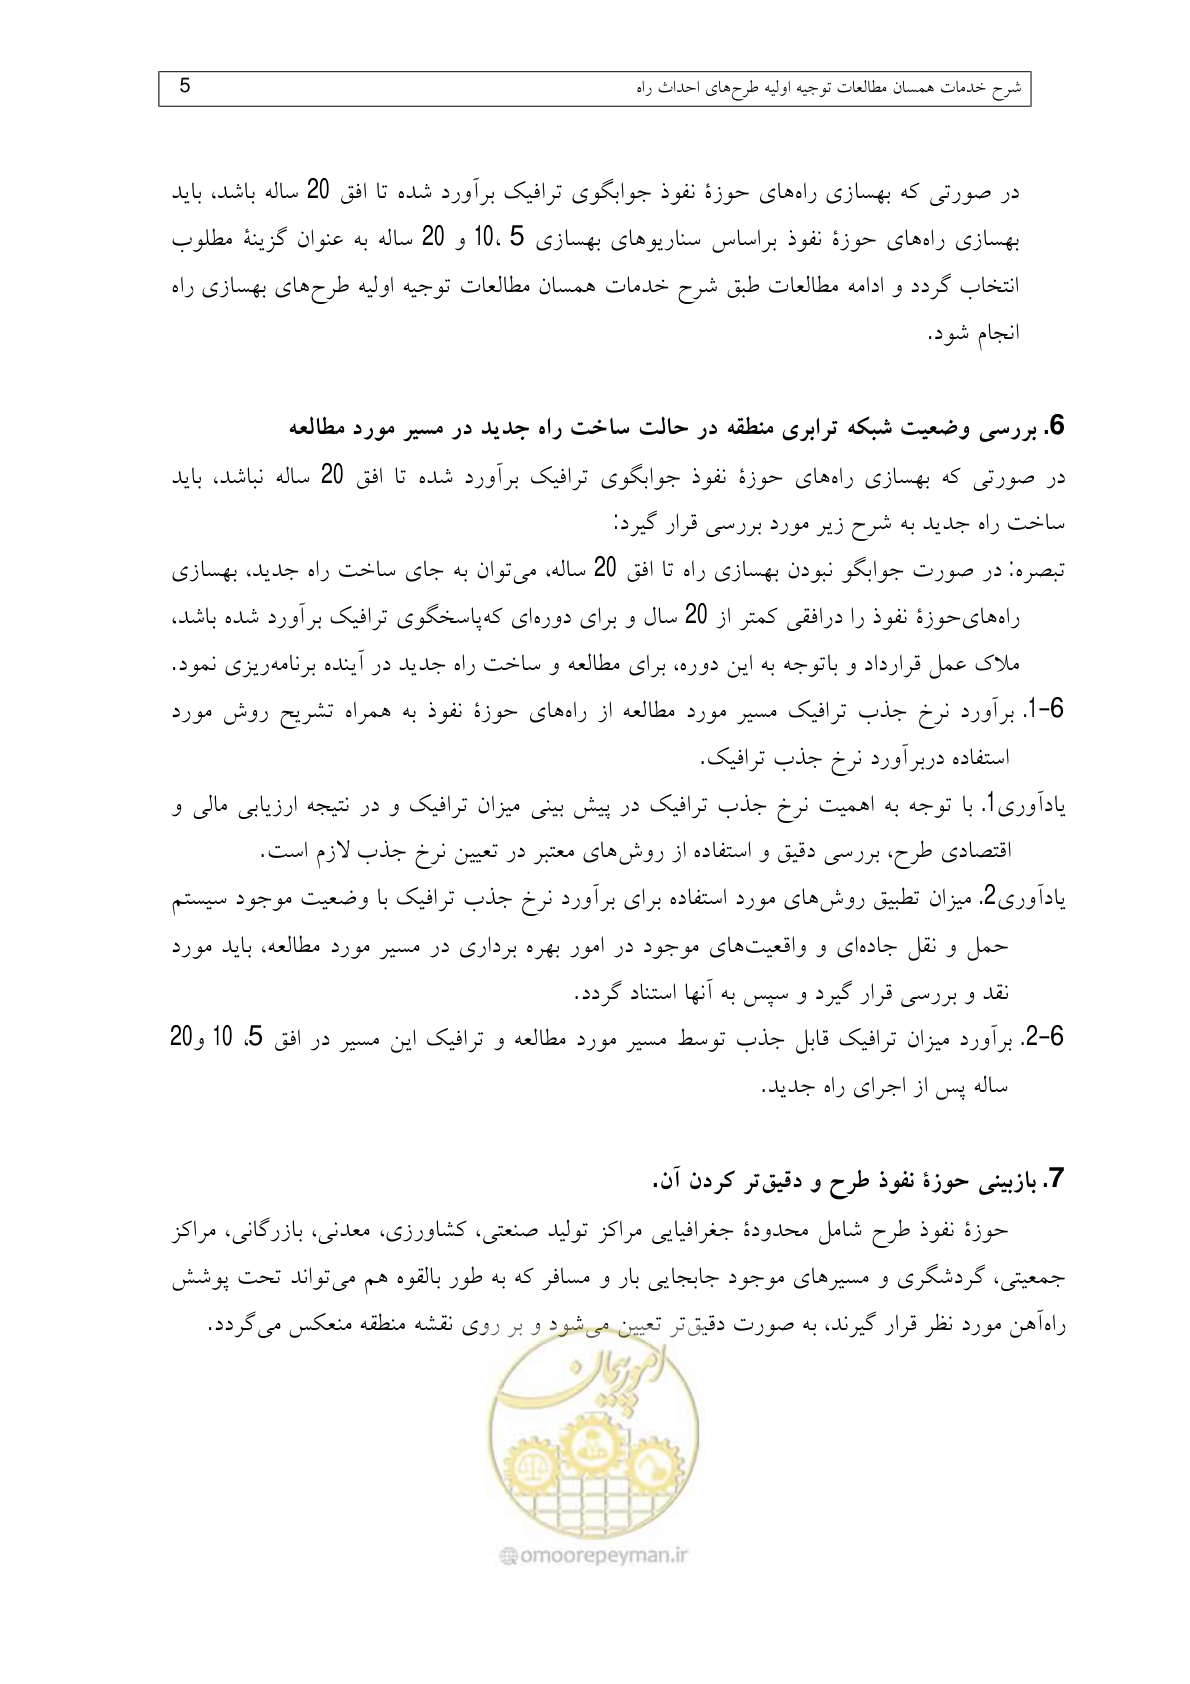 شرح خدمات همسان مطالعات توجیه اولیه طرح‌های احداث راه 5
در صورتی که بهسازی راه‌های حوزۀ نفوذ جوابگوی ترافیک برآورد شده تا افق 20 ساله باشد، باید
بهسازی راه‌های حوزۀ نفوذ براساس سناریوهای بهسازی 5 ،10 و 20 ساله به عنوان گزینۀ مطلوب
انتخاب گردد و ادامه مطالعات طبق شرح خدمات همسان مطالعات توجیه اولیه طرح‌های بهسازی راه
انجام شود.
6. بررسی وضعیت شبکه ترابری منطقه در حالت ساخت راه جدید در مسیر مورد مطالعه
در صورتی که بهسازی راه‌های حوزۀ نفوذ جوابگوی ترافیک برآورد شده تا افق 20 ساله نباشد، باید
ساخت راه جدید به شرح زیر مورد بررسی قرار گیرد:
تبصره: در صورت جوابگو نبودن بهسازی راه تا افق 20 ساله، می‌توان به جای ساخت راه جدید، بهسازی
راه‌های‌حوزۀ نفوذ را درافقی کمتر از 20 سال و برای دوره‌ای که‌پاسخگوی ترافیک برآورد شده باشد،
ملاک عمل قرارداد و باتوجه به این دوره، برای مطالعه و ساخت راه جدید در آینده برنامه‌ریزی نمود.
6-1. برآورد نرخ جذب ترافیک مسیر مورد مطالعه از راه‌های حوزۀ نفوذ به همراه تشریح روش مورد
استفاده دربرآورد نرخ جذب ترافیک.
یادآوری1. با توجه به اهمیت نرخ جذب ترافیک در پیش بینی میزان ترافیک و در نتیجه ارزیابی مالی و
اقتصادی طرح، بررسی دقیق و استفاده از روش‌های معتبر در تعیین نرخ جذب لازم است.
یادآوری2. میزان تطبیق روش‌های مورد استفاده برای برآورد نرخ جذب ترافیک با وضعیت موجود سیستم
حمل و نقل جاده‌ای و واقعیت‌های موجود در امور بهره برداری در مسیر مورد مطالعه، باید مورد
نقد و بررسی قرار گیرد و سپس به آنها استناد گردد.
6-2. برآورد میزان ترافیک قابل جذب توسط مسیر مورد مطالعه و ترافیک این مسیر در افق 5، 10 و20
ساله پس از اجرای راه جدید.
7. بازبینی حوزۀ نفوذ طرح و دقیق‌تر کردن آن.
حوزۀ نفوذ طرح شامل محدودۀ جغرافیایی مراکز تولید صنعتی، کشاورزی، معدنی، بازرگانی، مراکز
جمعیتی، گردشگری و مسیرهای موجود جابجایی بار و مسافر که به طور بالقوه هم می‌تواند تحت پوشش
راه‌آهن مورد نظر قرار گیرند، به صورت دقیق‌تر تعیین می‌شود و بر روی نقشه منطقه منعکس می‌گردد.
امور پیمان
omoorepeyman.ir